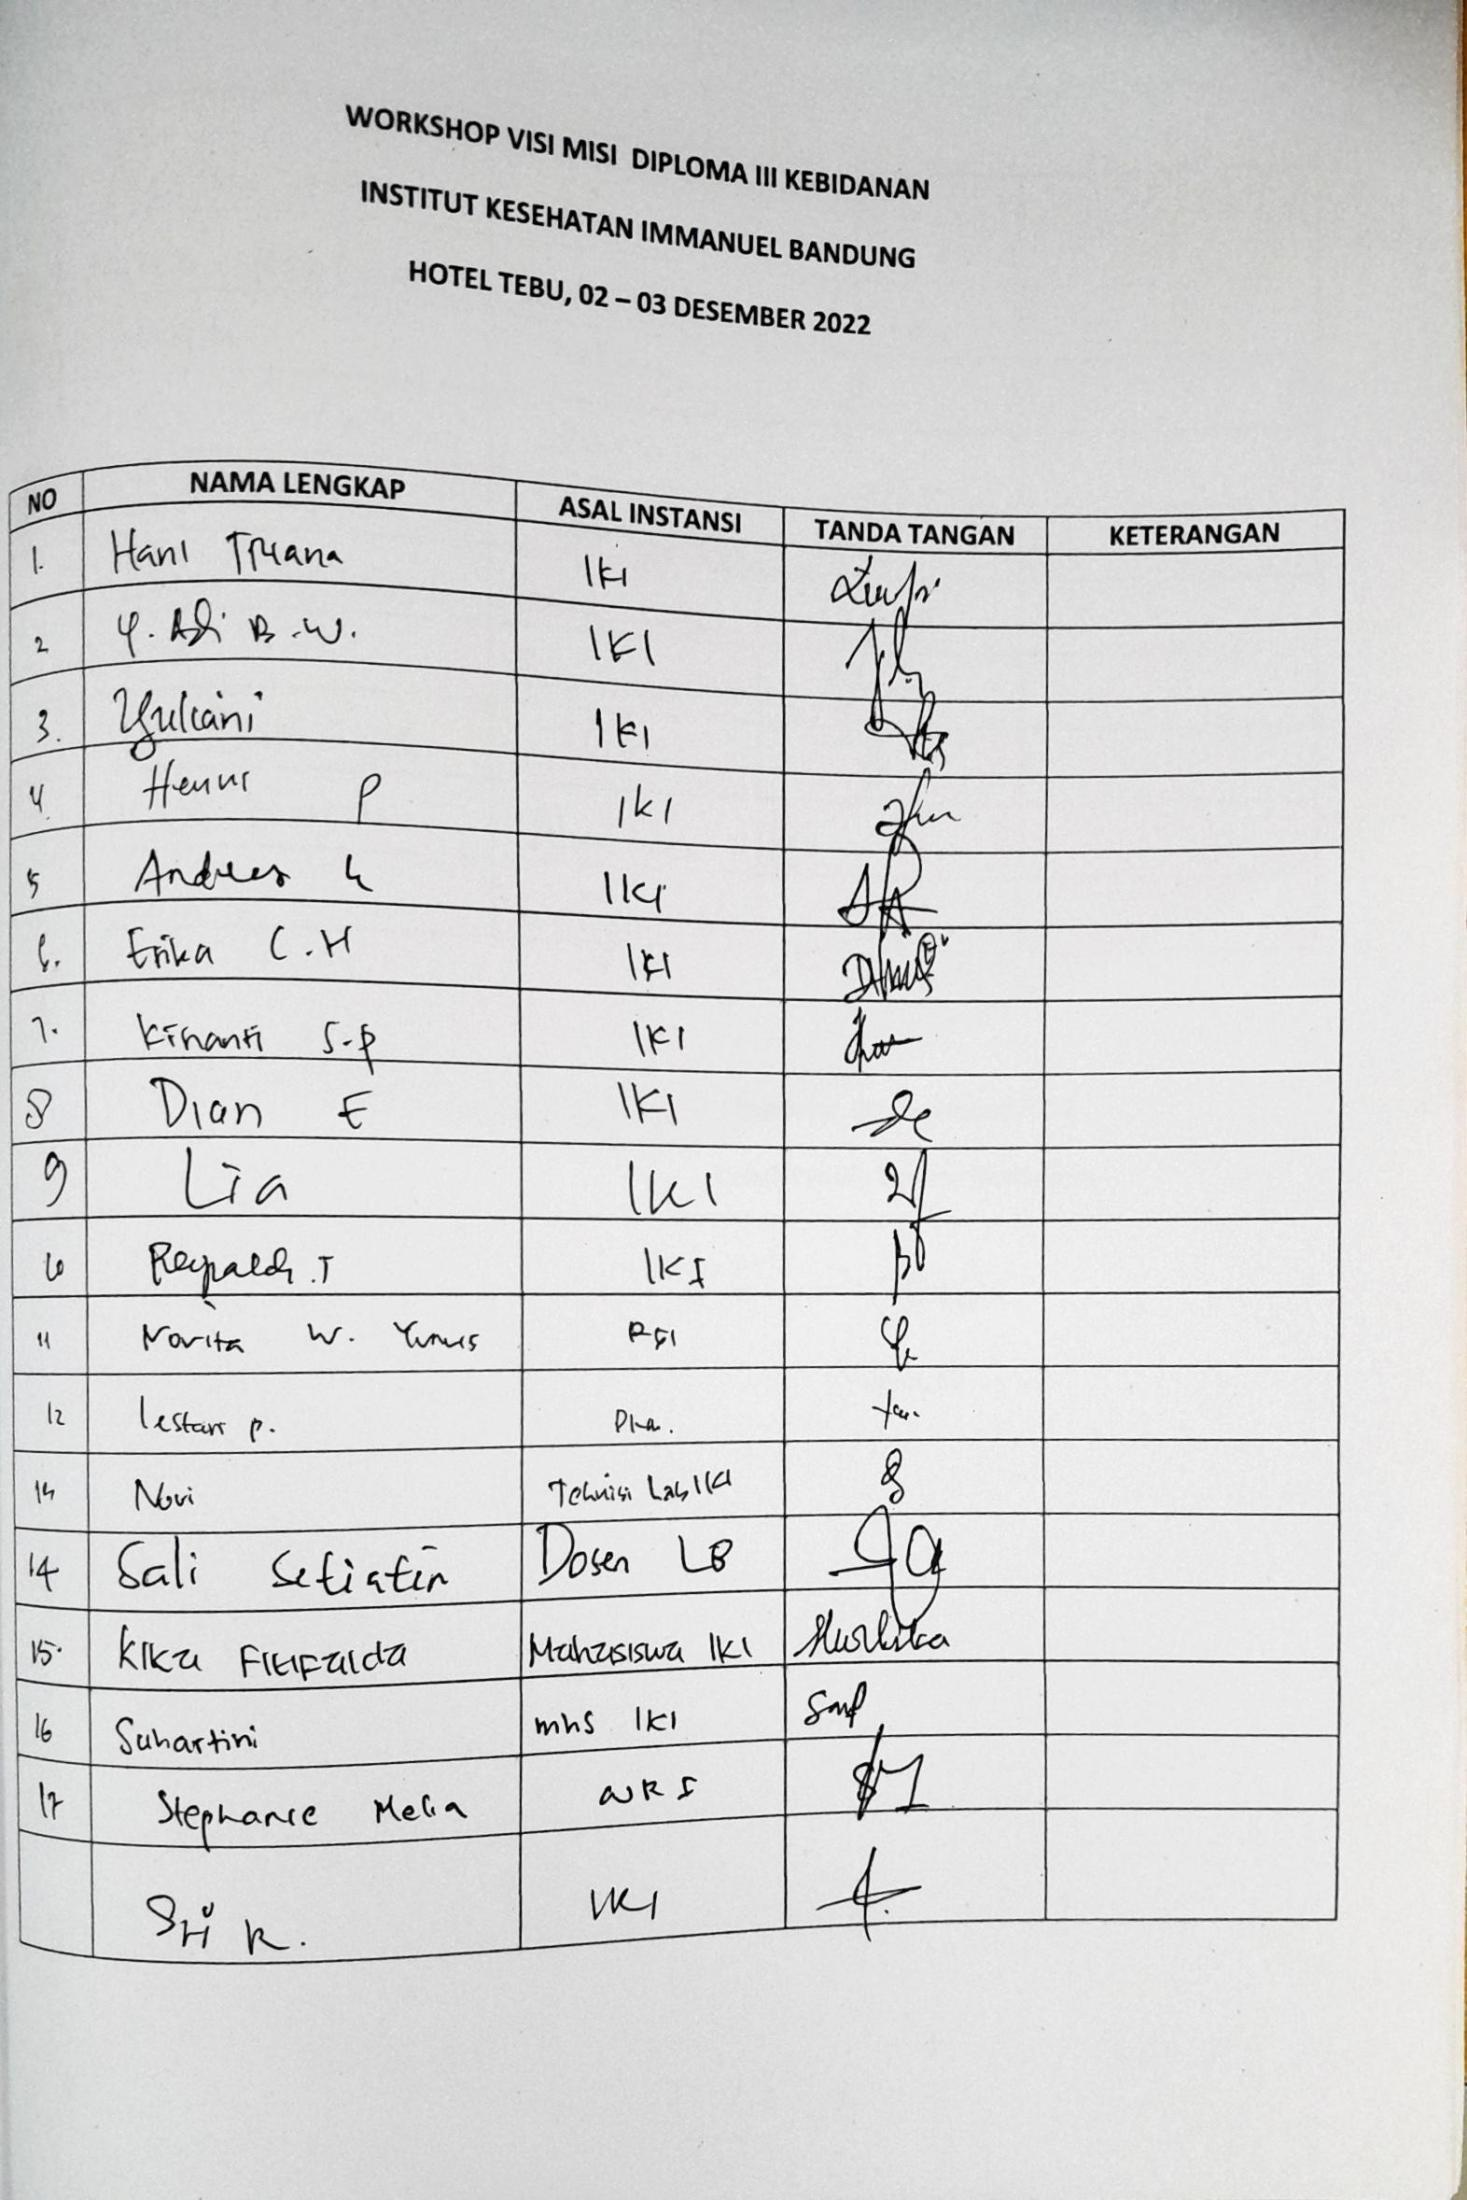 WORKSHOP VISI MISI DIPLOMA III KEBIDANAN
INSTITUT KESEHATAN IMMANUEL BANDUNG
HOTEL TEBU, 02 – 03 DESEMBER 2022
NO NAMA LENGKAP ASAL INSTANSI TANDA TANGAN KETERANGAN
1. Hani Triana IKI
2 Y. Adi B.W. IKI
3. Yuliani IKI
4 Henni P IKI
5 Andreas IKI
6. Erika C.H IKI
7. Kinanti S.P IKI
8 Dian E IKI
9 Lia IKI
10 Reynaldi.T IKI
11 Novita W. Yunus RSI
12 lestari p.
13 Novi Teknisi Lab IKI
14 Sali Setiatin Dosen LB
15. Kika Fitifalda Mahasiswa IKI
16 Suhartini mhs IKI
17 Stephanie Melia
Sri R. IKI